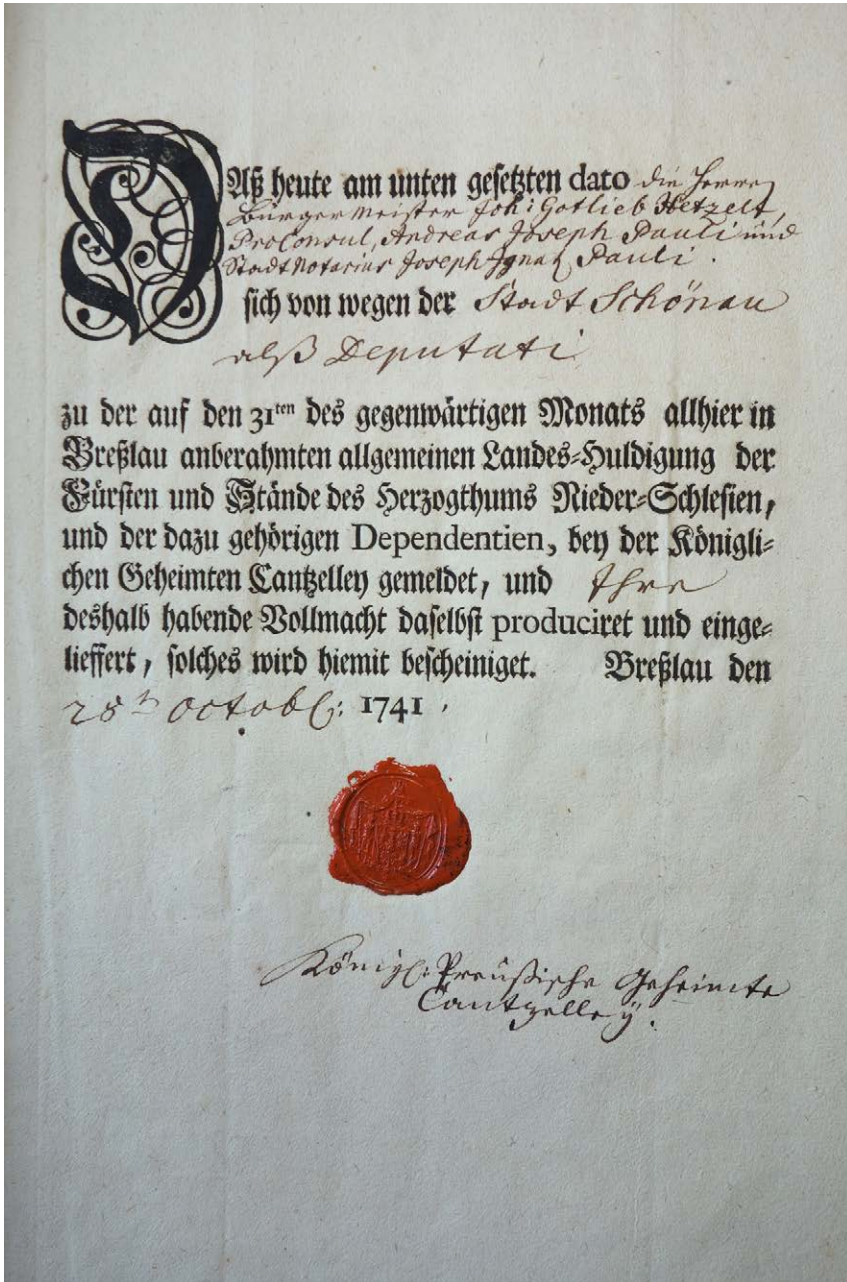 DAß heute am unten gesetzten dato die Herren
Bürgermeister Joh: Gotlieb Hetzelt,
ProConsul, Andreas Joseph Pauli und
Stadt Notarius Joseph Ignatz Pauli.
sich von wegen der Stadt Schönau
alß Deputati
zu der auf den 31ten des gegenwärtigen Monats allhier in
Breßlau anberahmten allgemeinen Landes-Huldigung der
Fürsten und Stände des Herzogthums Nieder-Schlesien,
und der dazu gehörigen Dependentien, bey der Königli-
chen Geheimten Cantzelley gemeldet, und Ihre
deshalb habende Vollmacht daselbst produciret und einge-
lieffert, solches wird hiemit bescheiniget. Breßlau den
28t Octobr: 1741.
Königl: Preußische Geheimte
Cantzelley.